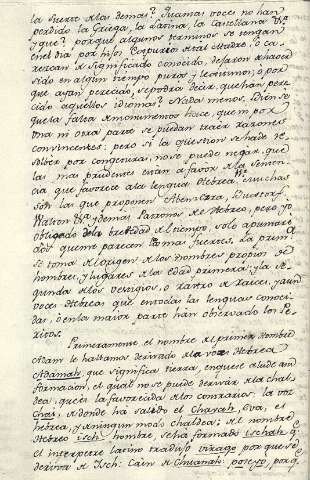 la suerte de las demas? Quantas voces no han
perdido la Griega, la Latina, la Castellana &a
y que? porque algunos terminos se tengan
en el dia por hijos Empurios de tal Madre, o ca-
rezcan de significado conocido, dexaron de haver
sido en algun tiempo puros y legitimos; o por
que ayan perecido, se podra decir, que han pere-
cido aquellos idiomas? Nada menos. Bien se
que la falta de monumentos hace, que ni por
una ni otra parte se puedan traer razones
convincentes: pero si la question se ha de re-
solver por congeturas, no se puede negar, que
las mas prudentes estan a favor de la Senten-
cia que favorece a la lengua Hebrea. Muchas
son las que proponen Abenezra, Buxtorf,
Walton &a y demas Patronos de Hebreo, pero yo
obligado de la brevedad del tiempo, solo apuntaré
dos que me parecen las mas fuertes. La prima
se toma del origen de los Nombres propios de
hombres, y lugares de la edad primera; y la se-
gunda de los vestigios, o rastro de raices, y aun
voces Hebreas que en todas las lenguas conoci-
das, o en la maior parte han observado los Pe-
ritos.
Primeramente el nombre del primer Hombre
Adam le hallamos derivado de la voz Hebrea
Adamah, que significa tierra, en que se alude a su
formacion, el qual no se puede derivar de la Chal-
dea, que es la favorecida de los contrarios: la voz
Chai, de donde ha salido el Chayah, Eva, es
hebrea, y de ningun modo chaldea; del nombre
Hebreo isch hombre, se ha formado ischah, q.e
el interprete latino traduxo virago porque se
deriva de Isch: Cain de Chanah: poseyo, porq.e